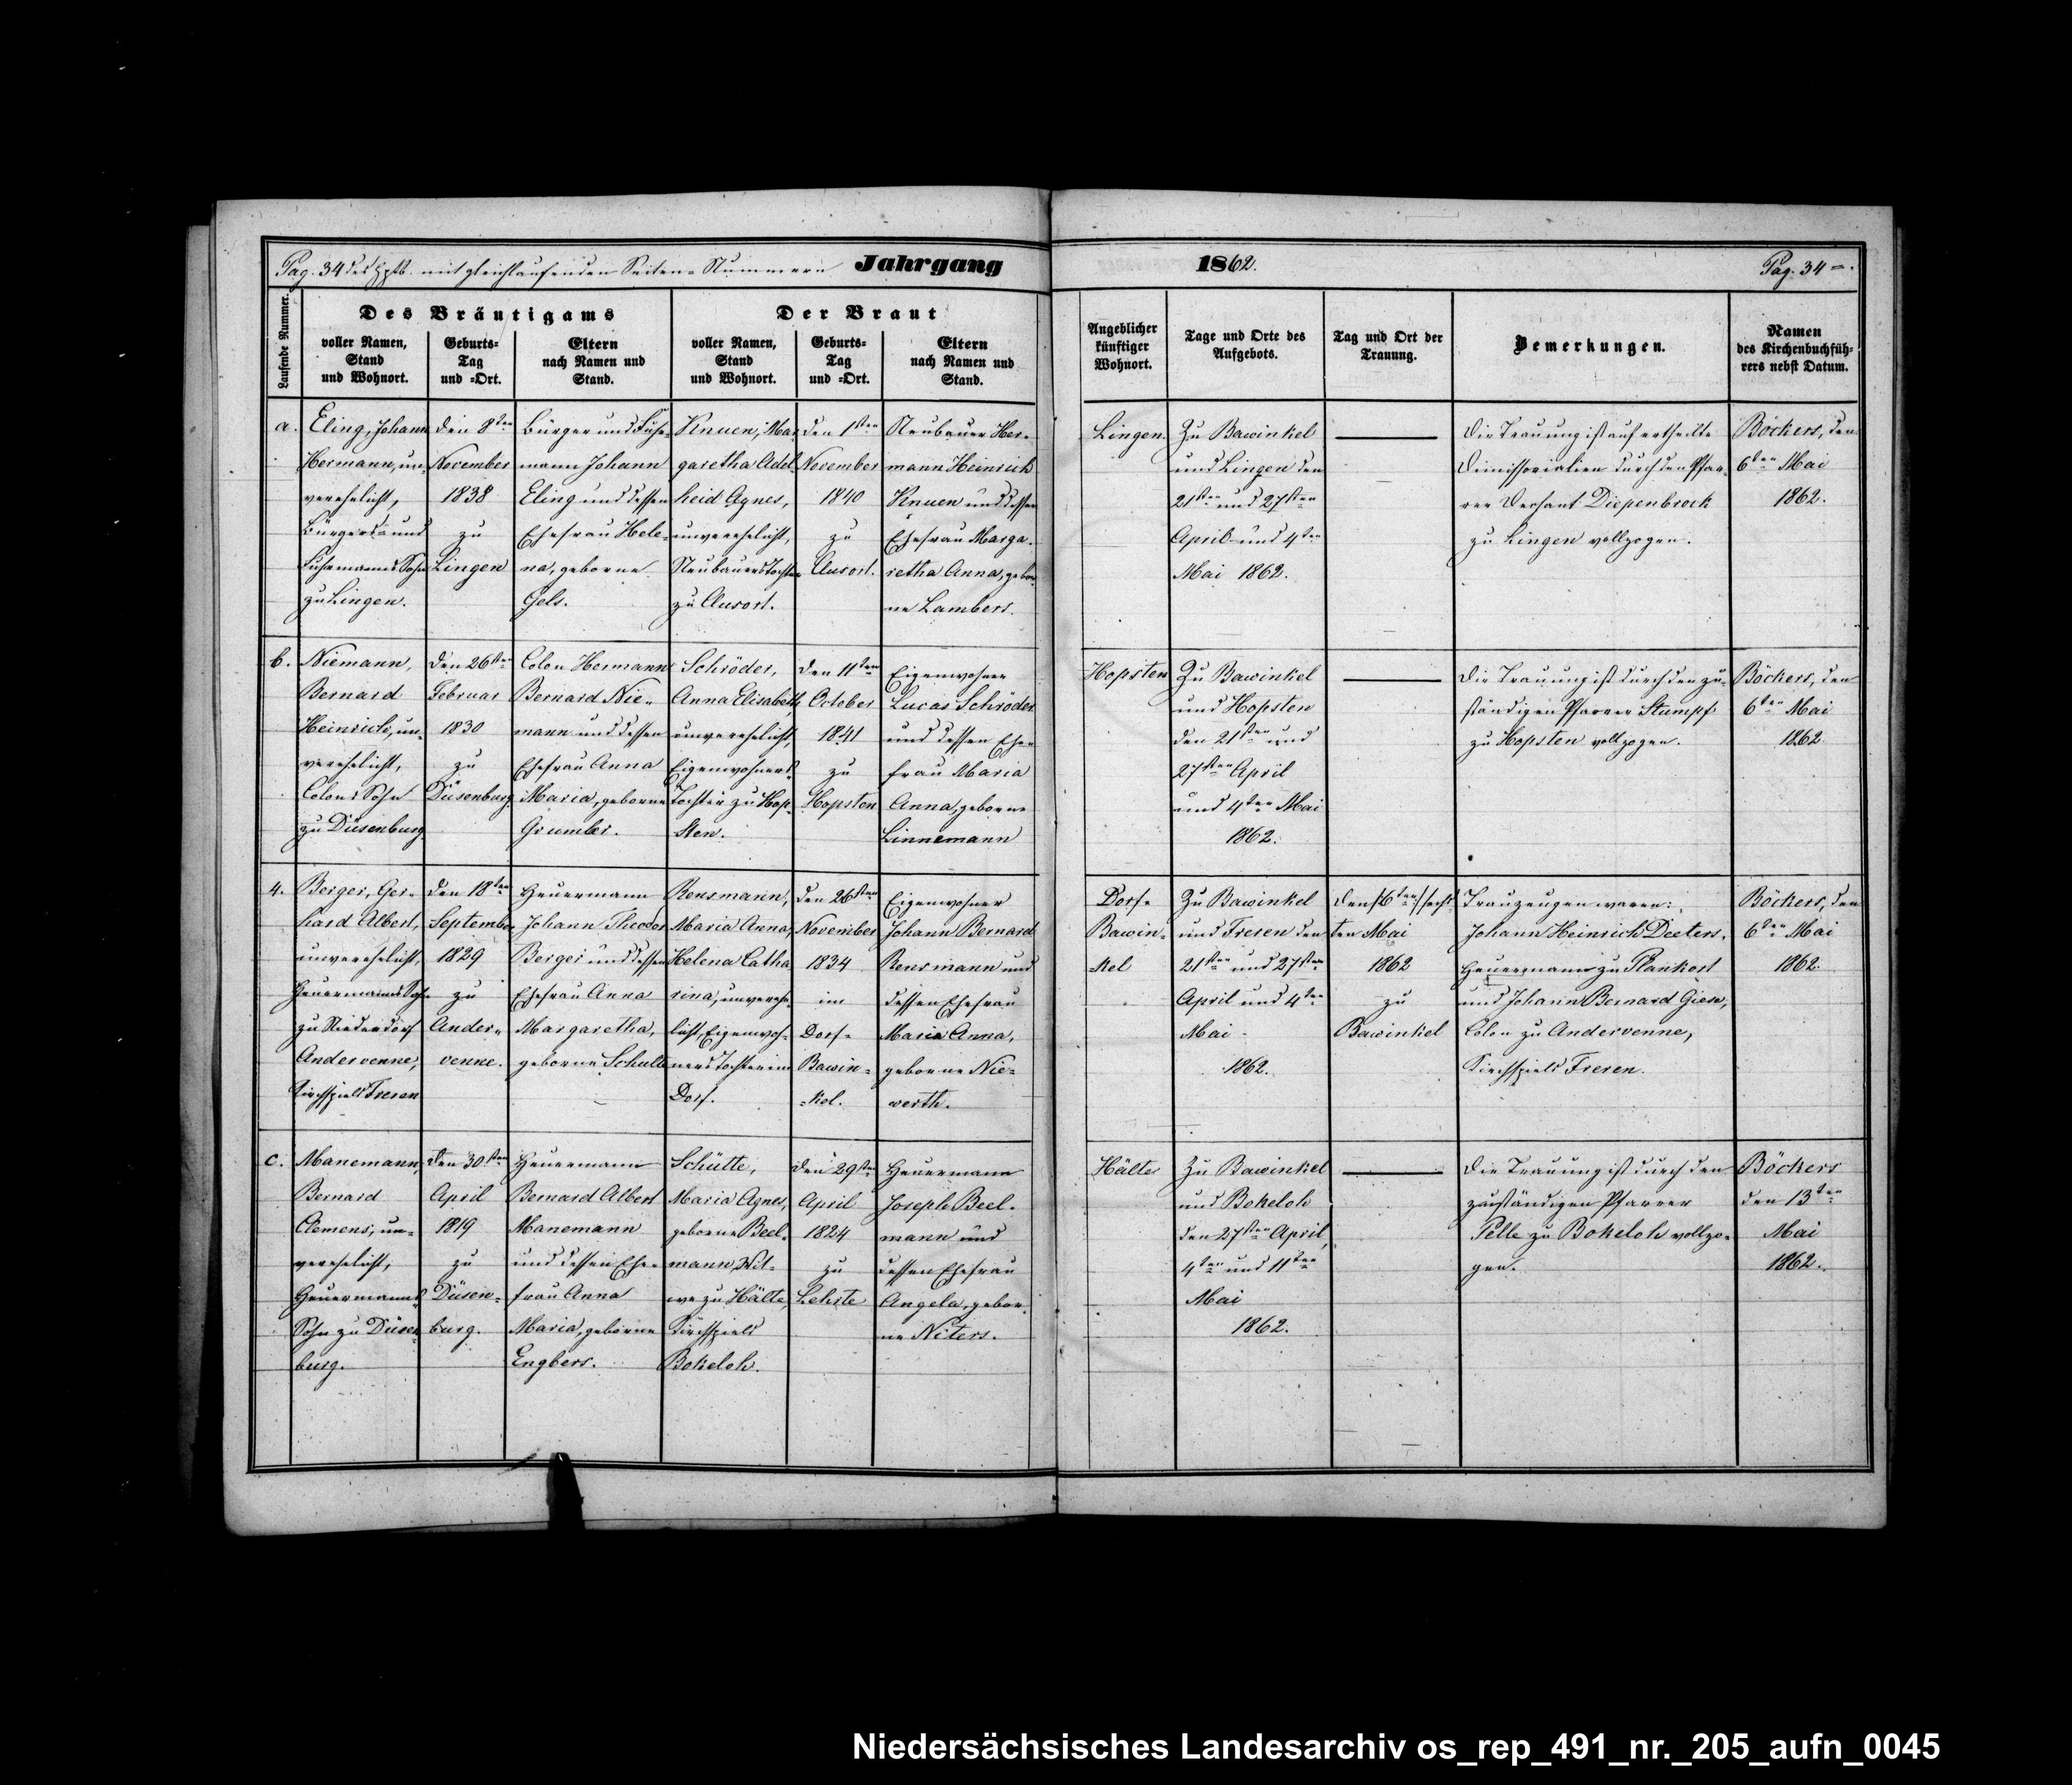 Pag. 34 des Hptb. mit gleichlaufenden Seiten-Nummern Jahrgang
1862.
Pag. 34
Laufende Nummer.
Des Bräutigams
voller Namen,
Stand
und Wohnort.
Geburts-
Tag
und =Ort.
Eltern
nach Namen und
Stand.
Der Braut
voller Namen,
Stand
und Wohnort.
Geburts-
Tag
und =Ort.
Eltern
nach Namen und
Stand.
Angeblicher
künftiger
Wohnort.
Tage und Orte des
Aufgebots.
Tag und Ort der
Trauung.
Bemerkungen.
Namen
des Kirchenbuchfüh-
rers nebst Datum.
a.
Eling, Johann
Hermann, un-
verehelicht,
Bürgers- und
Fuhrmanns Sohn
zu Lingen.
den 8ten
November
1838
zu
Lingen
Bürger und Fuhr-
mann Johann
Eling und dessen
Ehefrau Hele-
na, geborne
Gels.
Knuen, Mar-
garetha Adel-
heid Agnes,
unverehelicht,
Neubauers Tochter
zu Clusort.
den 1sten
November
1840
zu
Clusort.
Neubauer Her-
mann Heinrich
Knuen und dessen
Ehefrau Marga-
retha Anna, gebor-
ne Lambers.
Lingen.
Zu Bawinkel
und Lingen den
21sten und 27sten
April und 4ten
Mai 1862.
Die Trauung ist auf ertheilte
Dimissorialien durch den Pfar-
rer Dechant Diepenbrock
zu Lingen vollzogen.
Böckers, den
6ten Mai
1862.
b.
Niemann,
Bernard
Heinrich, un-
verehelicht,
Colons Sohn
zu Düsenburg
den 26sten
Februar
1830
zu
Düsenburg
Colon Hermann
Bernard Nie-
mann und dessen
Ehefrau Anna
Maria, geborne
Grumber.
Schröder,
Anna Elisabeth
unverehelicht,
Eigenwohners
Tochter zu Hop-
sten.
den 11ten
October
1841
zu
Hopsten
Eigenwohner
Lucas Schröder
und dessen Ehe-
frau Maria
Anna, geborne
Linnemann
Hopsten
Zu Bawinkel
und Hopsten
den 21sten und
27sten April
und 4ten Mai
1862.
Die Trauung ist durch den zu-
ständigen Pfarrer Stumpf
zu Hopsten vollzogen.
Böckers, den
6ten Mai
1862
4.
Berger, Ger-
hard Albert,
unverehelicht,
Heuermanns Sohn
zu Niederdorf
Andervenne,
Kirchspiels Freren
den 18ten
September
1829
zu
Ander-
venne.
Heuermann
Johann Theodor
Berger und dessen
Ehefrau Anna
Margaretha,
geborne Schulte
Rensmann,
Maria Anna,
Helena Catha
rina, unverehe-
licht, Eigenwoh-
ners Tochter im
Dorf.
den 26sten
November
1834
im
Dorf-
Bawin-
-kel.
Eigenwohner
Johann Bernard
Rensmann und
dessen Ehefrau
Maria Anna,
geborne Nie-
werth.
Dorf-
Bawin-
-kel
Zu Bawinkel
und Freren den
21sten und 27sten
April und 4ten
Mai
1862.
den /:6ten:/ sechs-
ten Mai
1862
zu
Bawinkel
Trauzeugen waren:
Johann Heinrich Deeters,
Heuermann zu Plankort
und Johann Bernard Giese,
Colon zu Andervenne,
Kirchspiels Freren.
Böckers, den
6ten Mai
1862.
c.
Manemann,
Bernard
Clemens, un-
verehelicht,
Heuermanns
Sohn zu Düsen-
burg.
den 30sten
April
1819
zu
Düsen-
burg.
Heuermann
Bernard Albert
Manemann
und dessen Ehe-
frau Anna
Maria, geborne
Engbers.
Schütte,
Maria Agnes,
geborne Beel-
mann, Wit-
we zu Hälte,
Kirchspiels
Bokeloh.
den 29sten
April
1824
zu
Lehrte
Heuermann
Joseph Beel-
mann und
dessen Ehefrau
Angela, gebor-
ne Niters.
Hälte
Zu Bawinkel
und Bokeloh
den 27sten April,
4ten und 11ten
Mai
1862.
Die Trauung ist durch den
zuständigen Pfarrer
Pelle zu Bokeloh vollzo-
gen.
Böckers
den 13ten
Mai
1862.
Niedersächsisches Landesarchiv os_rep_491_nr._205_aufn_0045